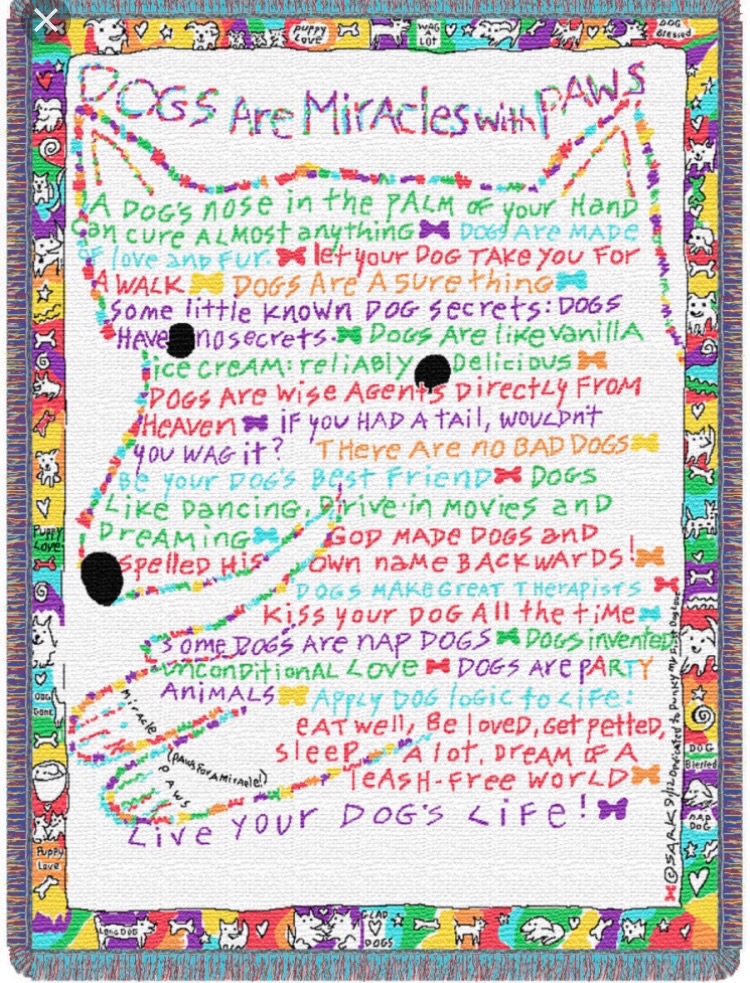 puppy love
WAG
LOT
DOG
Blessed
DOGS Are Miracles with PAWS
A DOG'S nose in the PALM of your Hand
can cure ALMost anything DOGS Are MADE
of love and Fur. let your DOG TAKe you For
A WALK DOGS Are A sure thing
Some little known DOG secrets: DOGS
Have no secrets. DOGS Are like vanilla
ice cream: reliably Delicious
DOGS Are wise Agents Directly From
Heaven IF you HAD A tail, wouldn't
you WAG it? THere Are no BAD DOGS
Be your DOG'S Best Friend DOGS
Like Dancing, Drive-in Movies and
Dreaming GOD MADE DOGS and
spelled His own name BACKWARDS!
DOGS MAKE Great THerapists
Kiss your DOG All the time
Some DOGS Are nap DOGS DOGS invented
unconditional Love DOGS Are PARTY
Animals Apply DOG logic to life:
eat well, Be loved, Get petted,
sleep A lot. Dream of A
leash-Free world
Live your DOG'S Life!
miracle
PAWS
(PAWS FOR A Miracle!)
Puppy
Love
DOG
GONE
Puppy
Love
DOG
Blessed
NAP
DOG
LONG DOG
GLAD
DOGS